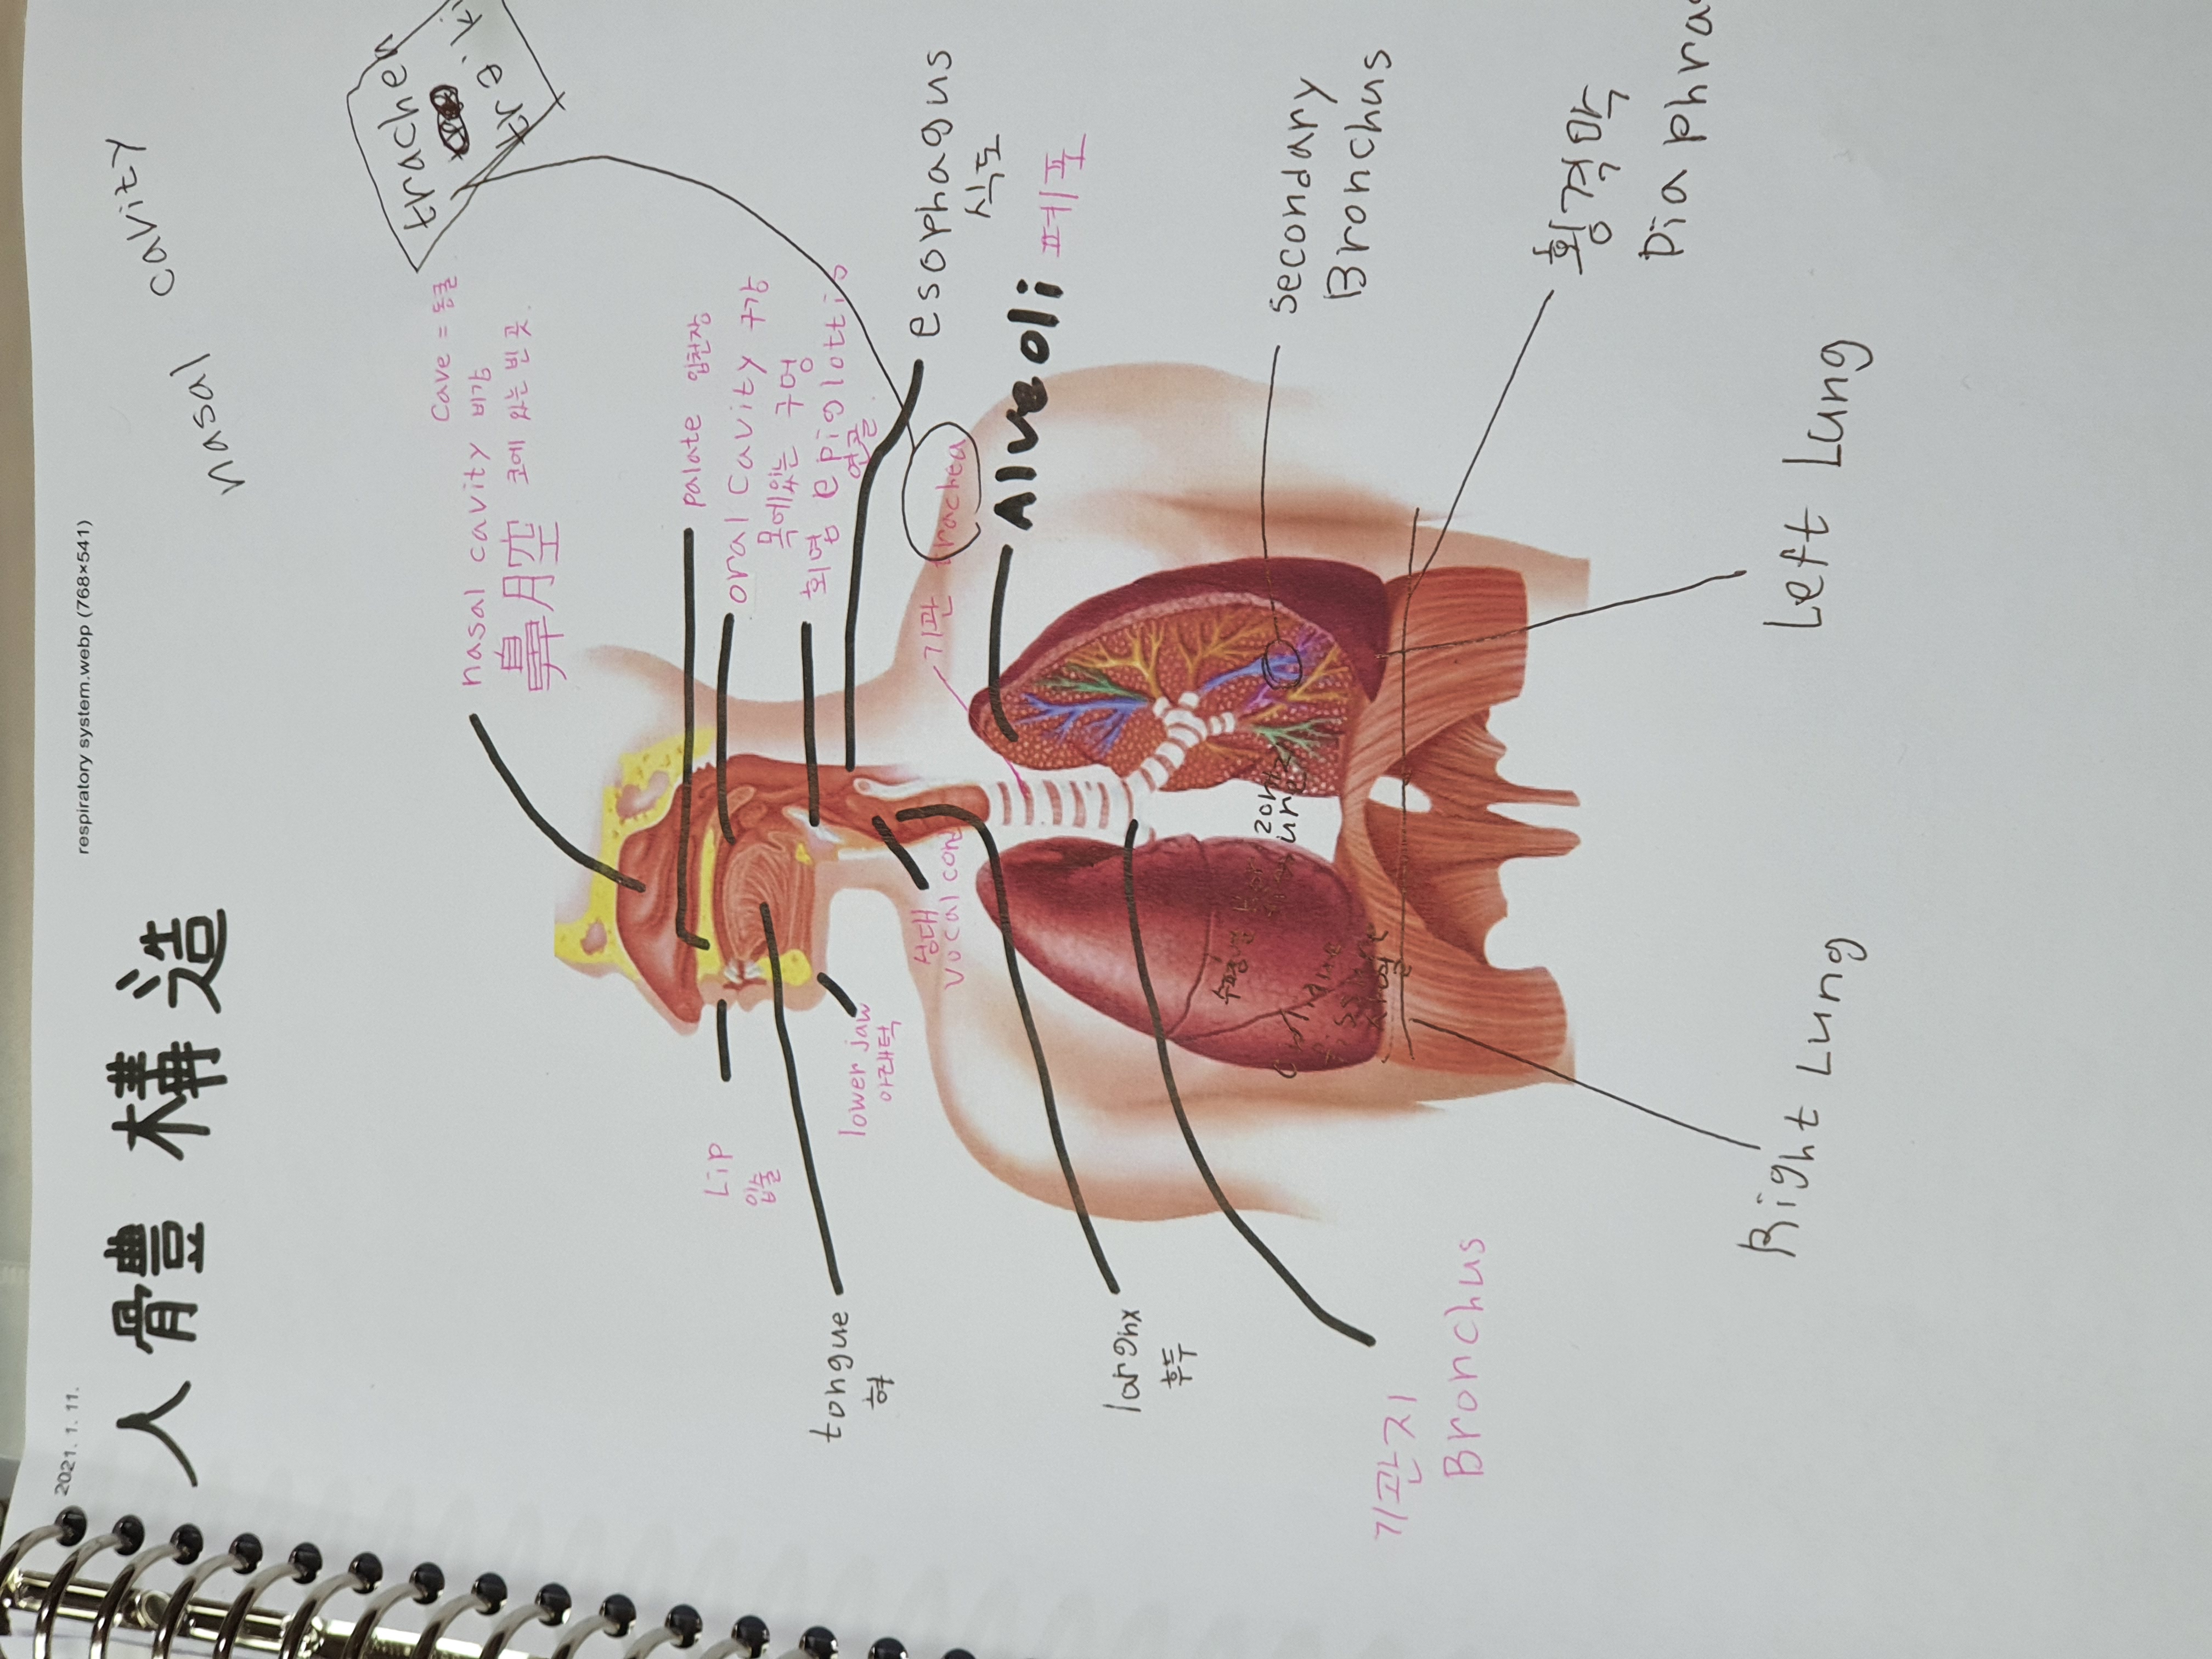 2021. 1. 11.
respiratory system.webp (768×541)
人 體 構 造
nasal cavity
trachea
cave = 동굴
nasal cavity 비강
鼻腔 코에 있는 빈 곳.
palate 입천장
oral cavity 구강
목에 있는 구멍
회염 epiglottis
연골
esophagus
식도
기관 trachea
Alveoli 폐포
Lip
입술
lower jaw
아래턱
성대
vocal cord
tongue
혀
larghx
후두
기관지
Bronchus
secondary
Bronchus
횡격막
Left Lung
Right Lung